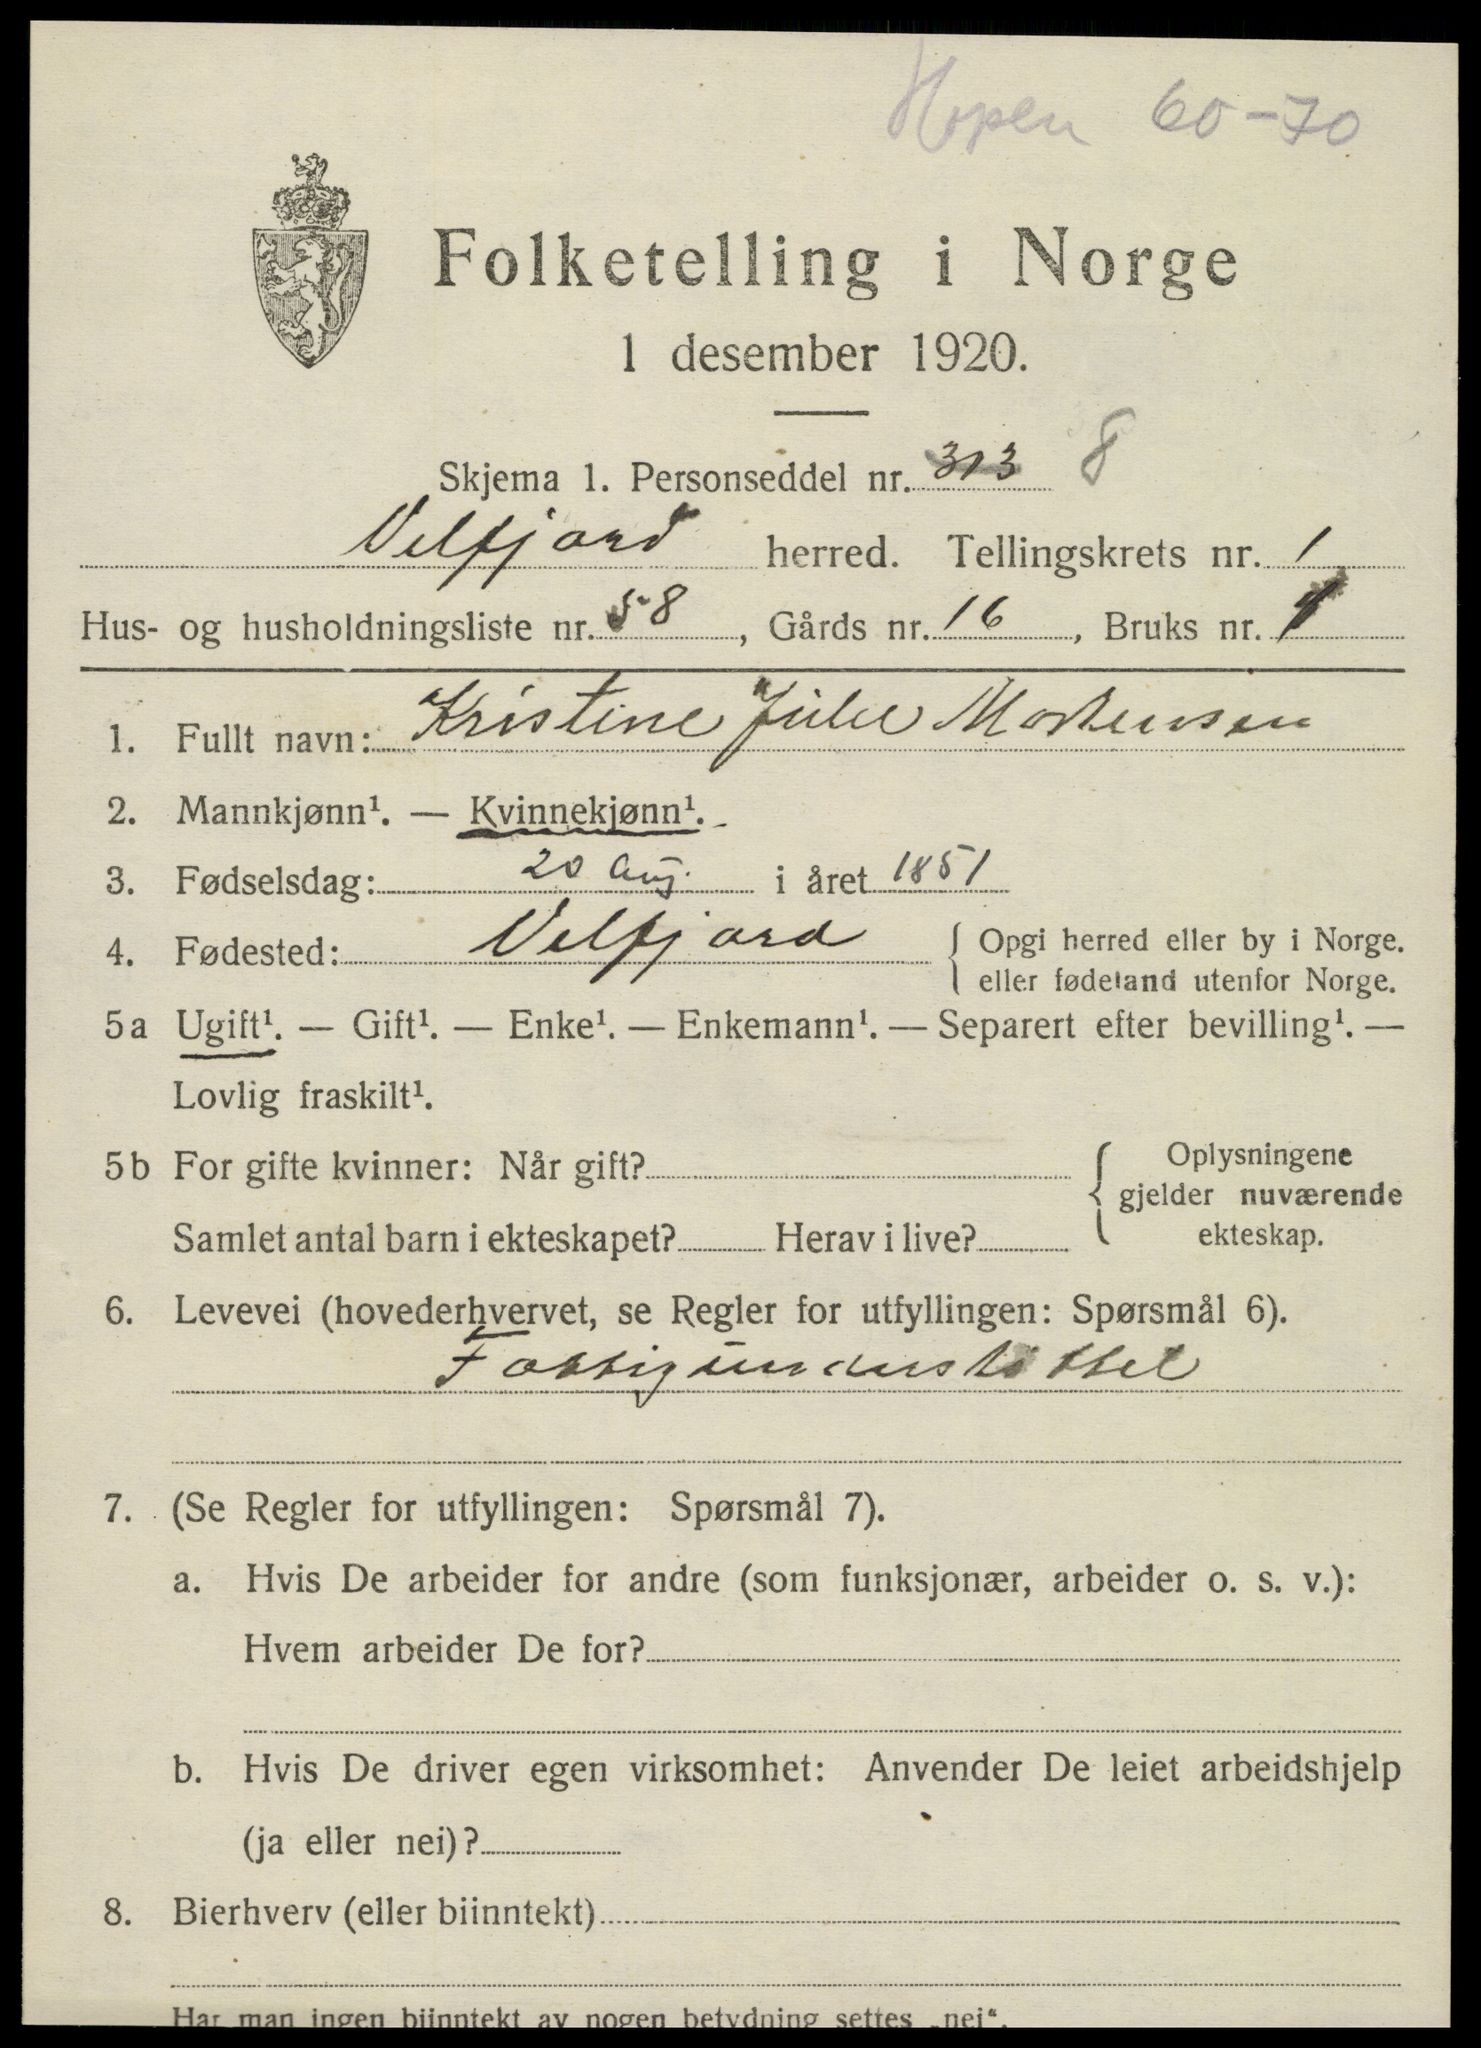 Hopen 60-70
Folketelling i Norge
1 desember 1920.
Skjema 1. Personseddel nr. 313 8
Velfjord herred. Tellingskrets nr. 1
Hus- og husholdningsliste nr. 58, Gårds nr. 16, Bruks nr. 1
1. Fullt navn: Kristine Julie Mortensen
2. Mannkjønn¹. — Kvinnekjønn¹.
3. Fødselsdag: 20 Aug. i året 1851
4. Fødested: Velfjord { Opgi herred eller by i Norge.
eller fødeland utenfor Norge.
5a Ugift¹. — Gift¹. — Enke¹. — Enkemann¹. — Separert efter bevilling¹. —
Lovlig fraskilt¹.
5b For gifte kvinner: Når gift? { Oplysningene
gjelder nuværende
Samlet antal barn i ekteskapet? Herav i live? ekteskap.
6. Levevei (hovederhvervet, se Regler for utfyllingen: Spørsmål 6).
Fattigunderstøttet
7. (Se Regler for utfyllingen: Spørsmål 7).
a. Hvis De arbeider for andre (som funksjonær, arbeider o. s. v.):
Hvem arbeider De for?
b. Hvis De driver egen virksomhet: Anvender De leiet arbeidshjelp
(ja eller nei)?
8. Bierhverv (eller biinntekt)
Har man ingen biinntekt av nogen betydning settes „nei“.